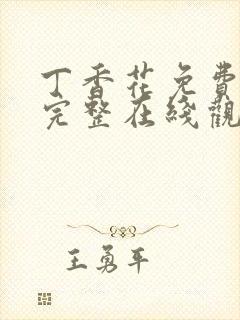 丁香花免費
完整在綫觀
王勇平